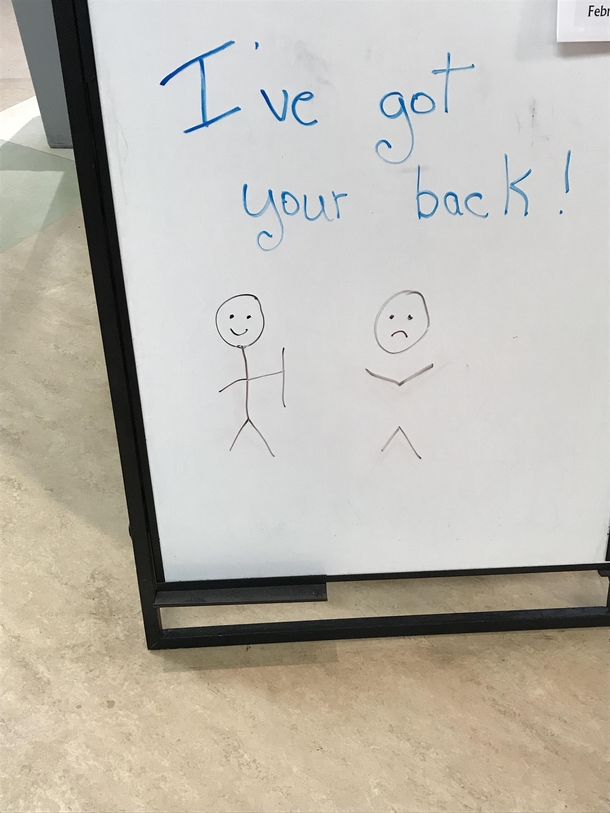 I've got
your back!